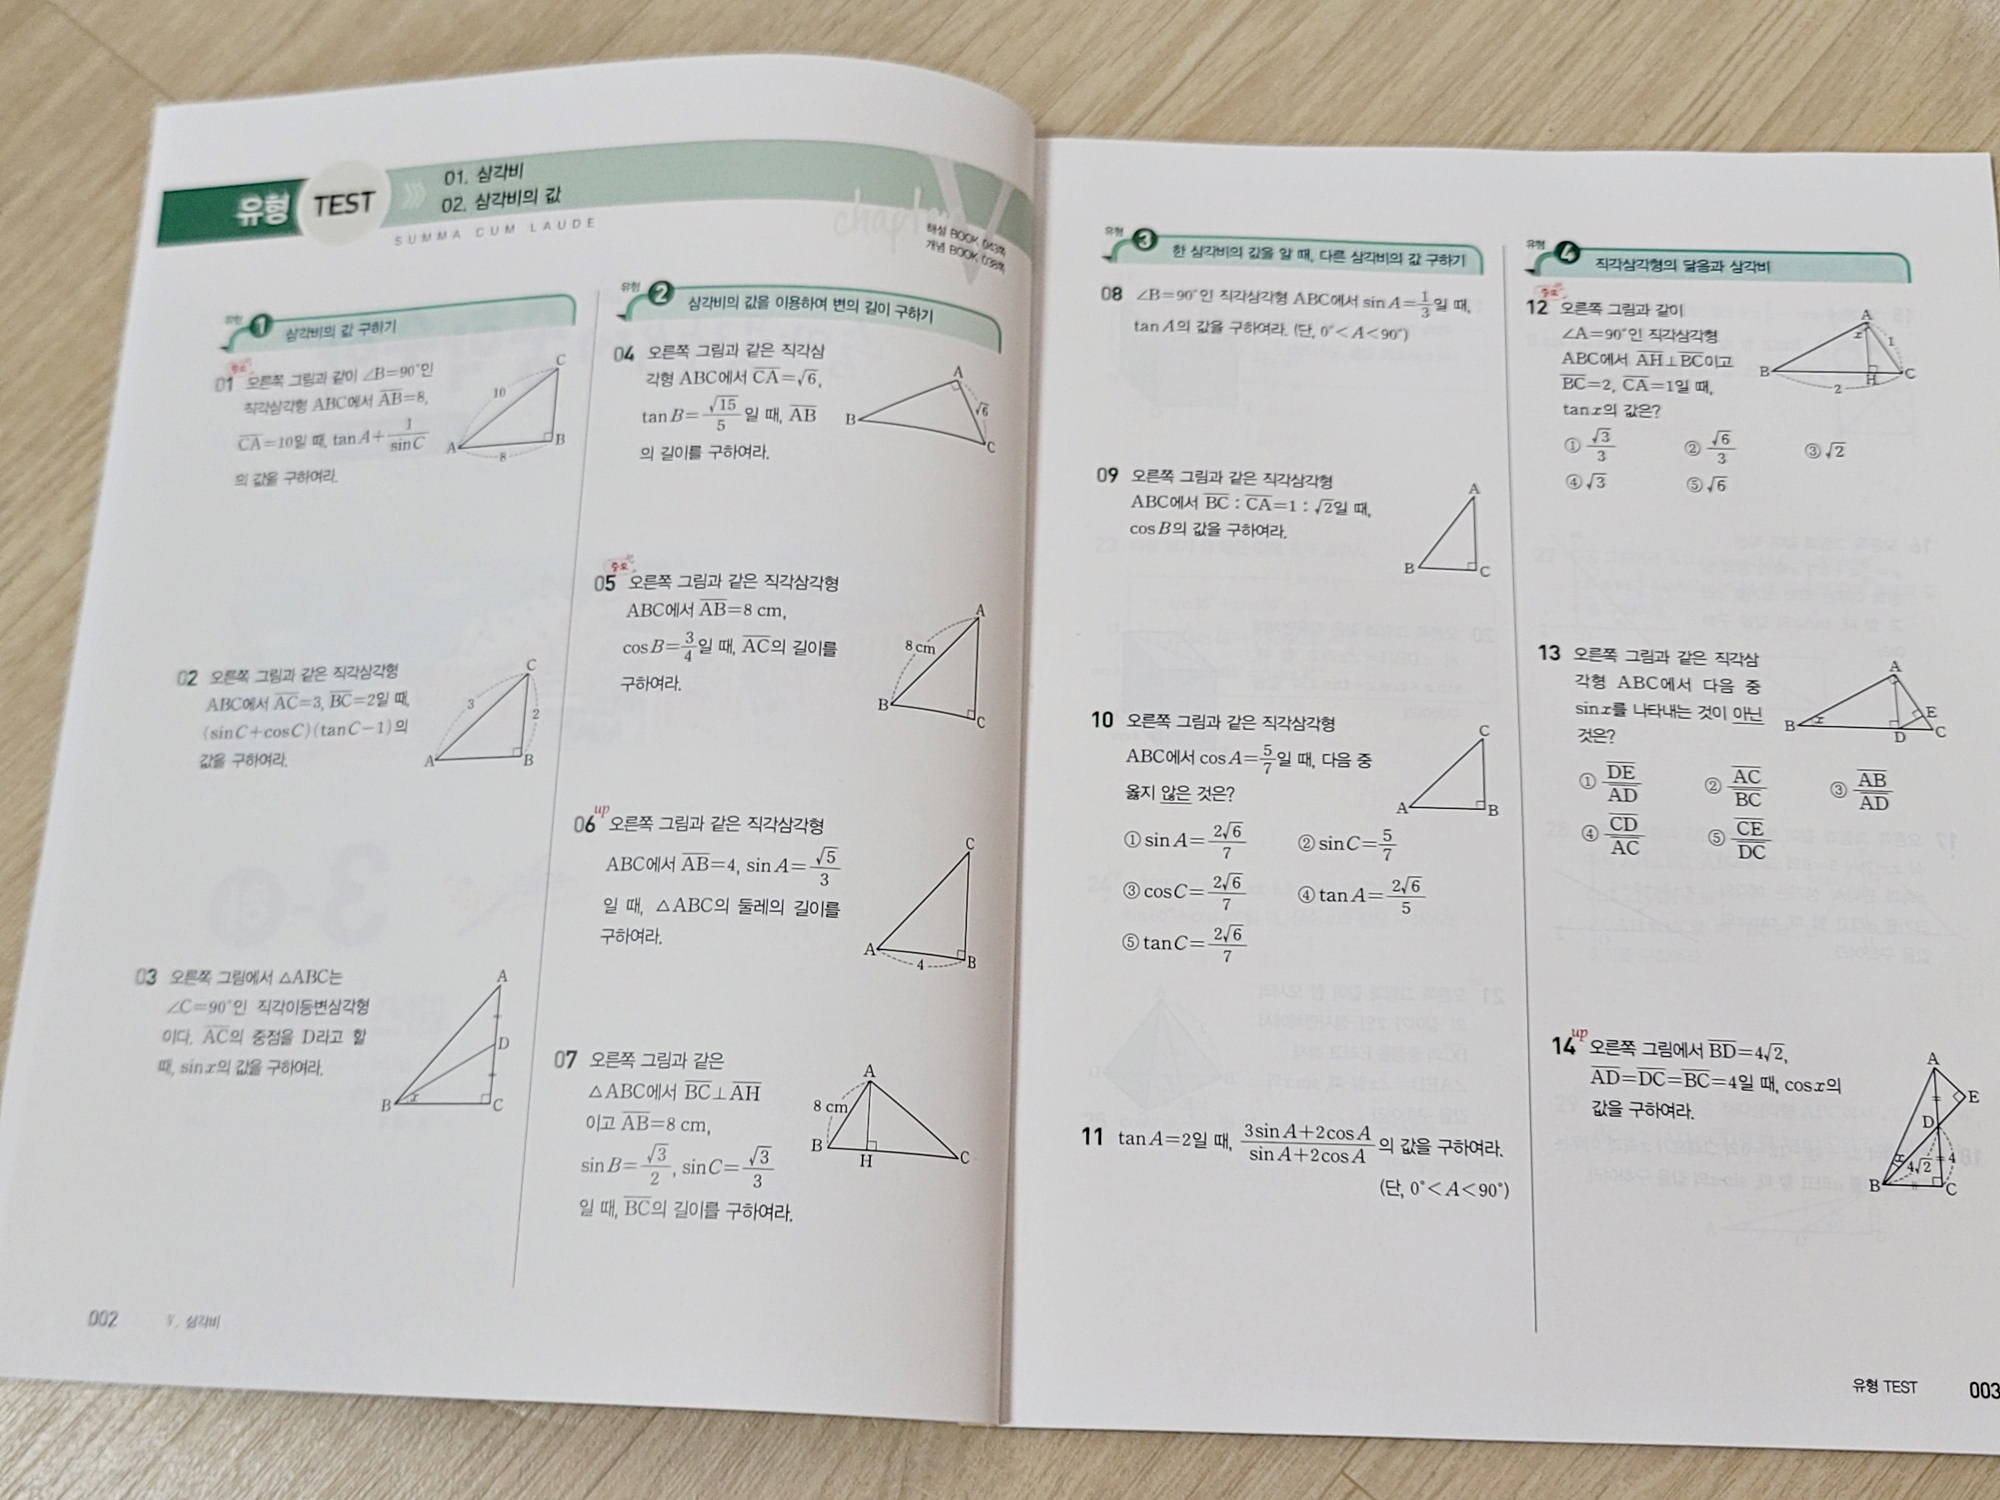 유형 TEST
01. 삼각비
02. 삼각비의 값
SUMMA CUM LAUDE
해설 BOOK 043쪽
개념 BOOK 038쪽
유형 1 삼각비의 값 구하기
중요
01 오른쪽 그림과 같이 ∠B=90°인
직각삼각형 ABC에서 A͞B=8,
C͞A=10일 때, tan A+1/sin C
의 값을 구하여라.
C
10
A
8
B
02 오른쪽 그림과 같은 직각삼각형
ABC에서 A͞C=3, B͞C=2일 때,
(sin C+cos C)(tan C−1)의
값을 구하여라.
C
3
2
A
B
03 오른쪽 그림에서 △ABC는
∠C=90°인 직각이등변삼각형
이다. A͞C의 중점을 D라고 할
때, sin x의 값을 구하여라.
A
D
x
B
C
002 Ⅴ. 삼각비
유형 2 삼각비의 값을 이용하여 변의 길이 구하기
04 오른쪽 그림과 같은 직각삼
각형 ABC에서 C͞A=√6,
tan B=√15/5일 때, A͞B
의 길이를 구하여라.
A
√6
B
C
중요
05 오른쪽 그림과 같은 직각삼각형
ABC에서 A͞B=8 cm,
cos B=3/4일 때, A͞C의 길이를
구하여라.
A
8 cm
B
C
up
06 오른쪽 그림과 같은 직각삼각형
ABC에서 A͞B=4, sin A=√5/3
일 때, △ABC의 둘레의 길이를
구하여라.
C
A
4
B
07 오른쪽 그림과 같은
△ABC에서 B͞C⊥A͞H
이고 A͞B=8 cm,
sin B=√3/2, sin C=√3/3
일 때, B͞C의 길이를 구하여라.
A
8 cm
B
H
C
유형 3 한 삼각비의 값을 알 때, 다른 삼각비의 값 구하기
08 ∠B=90°인 직각삼각형 ABC에서 sin A=1/3일 때,
tan A의 값을 구하여라. (단, 0°<A<90°)
09 오른쪽 그림과 같은 직각삼각형
ABC에서 B͞C : C͞A=1 : √2일 때,
cos B의 값을 구하여라.
A
B
C
10 오른쪽 그림과 같은 직각삼각형
ABC에서 cos A=5/7일 때, 다음 중
옳지 않은 것은?
① sin A=2√6/7 ② sin C=5/7
③ cos C=2√6/7 ④ tan A=2√6/5
⑤ tan C=2√6/7
C
A
B
11 tan A=2일 때, (3sin A+2cos A)/(sin A+2cos A)의 값을 구하여라.
(단, 0°<A<90°)
유형 4 직각삼각형의 닮음과 삼각비
중요
12 오른쪽 그림과 같이
∠A=90°인 직각삼각형
ABC에서 A͞H⊥B͞C이고
B͞C=2, C͞A=1일 때,
tan x의 값은?
① √3/3 ② √6/3 ③ √2
④ √3 ⑤ √6
A
x
1
B
H
C
2
13 오른쪽 그림과 같은 직각삼
각형 ABC에서 다음 중
sin x를 나타내는 것이 아닌
것은?
① D͞E/A͞D ② A͞C/B͞C ③ A͞B/A͞D
④ C͞D/A͞C ⑤ C͞E/D͞C
A
E
x
B
D
C
up
14 오른쪽 그림에서 B͞D=4√2,
A͞D=D͞C=B͞C=4일 때, cos x의
값을 구하여라.
A
E
D
x
4√2
4
B
C
유형 TEST 003